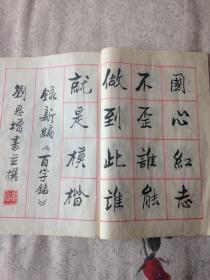 國心紅志
不歪誰能
做到此誰
就是模楷
錄新編《百字銘》
劉恩書並撰